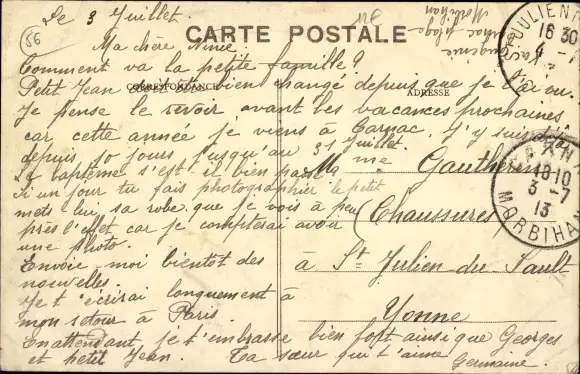 Le 3 Juillet.
CARTE POSTALE
Ma chère Ninie
Comment va la petite famille?
Petit Jean doit être bien changé depuis que je l'ai vu.
CORRESPONDANCE
ADRESSE
Je pense le revoir avant les vacances prochaines,
car cette année je viens à Carnac. J'y suis
depuis 10 jours jusqu'au 31 Juillet.
Le baptême s'est il bien passé
Si un jour tu fais photographier le petit
mets lui sa robe que je vois à peu
près l'effet car je compterai avoir
une photo.
Envoie moi bientôt des
nouvelles.
Je t'écrirai longuement à
mon retour à Paris.
En attendant je t'embrasse bien fort ainsi que Georges
et petit Jean. Ta sœur qui t'aime
Germaine.
Mme Gautherin
(Chaussures)
à St Julien-du-Sault
Yonne
Morbihan
plage
56
ST JULIEN
16 30
4 -7
CARNAC
18-10
3 -7
13
MORBIHAN